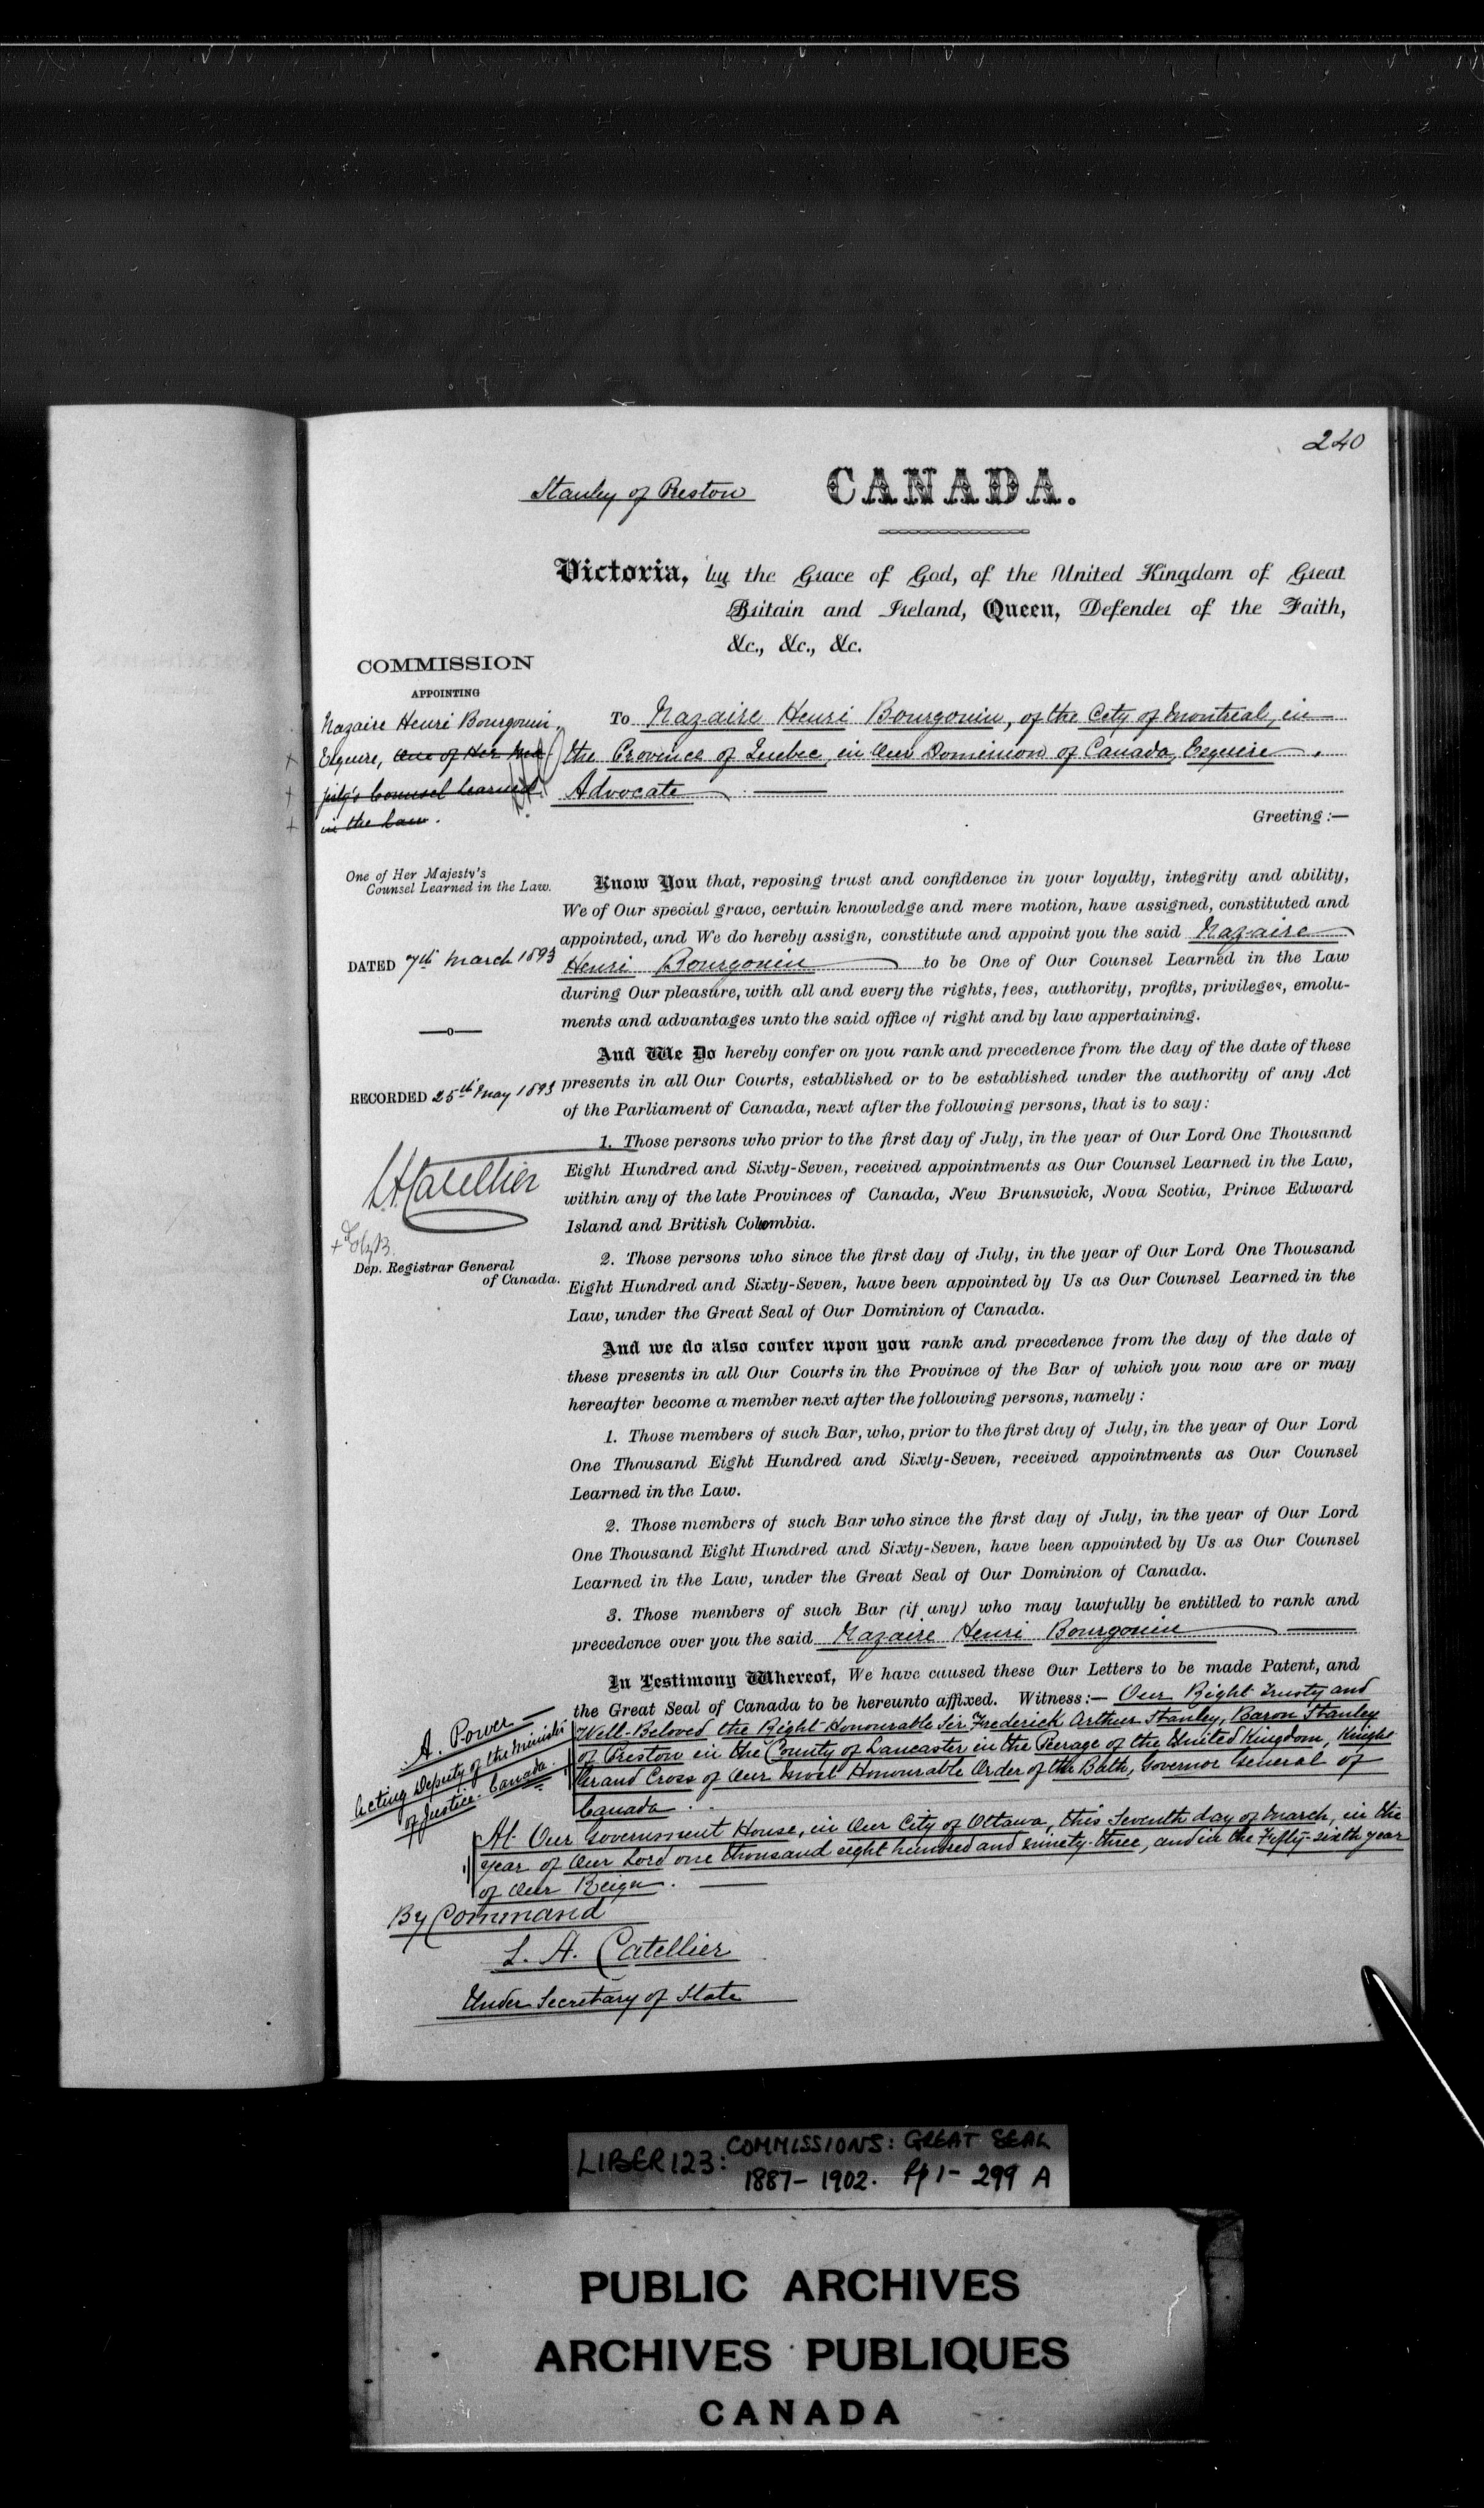 240
Stanley of Preston
CANADA.
Victoria, by the Grace of God, of the United Kingdom of Great
Britain and Ireland, Queen, Defender of the Faith,
&c., &c., &c.
COMMISSION
APPOINTING
Nazaire Henri Bourgouin,
Esquire, One of Her Ma
jesty's Counsel Learned
in the Law.
One of Her Majesty's
Counsel Learned in the Law.
DATED 7th March 1893
RECORDED 25th May 1893
L.A. Catellier
Dep. Registrar General
of Canada.
To Nazaire Henri Bourgouin, of the City of Montreal, in
the Province of Quebec, in Our Dominion of Canada, Esquire,
Advocate
Greeting:—
Know You that, reposing trust and confidence in your loyalty, integrity and ability,
We of Our special grace, certain knowledge and mere motion, have assigned, constituted and
appointed, and We do hereby assign, constitute and appoint you the said Nazaire
Henri Bourgouin to be One of Our Counsel Learned in the Law
during Our pleasure, with all and every the rights, fees, authority, profits, privileges, emolu-
ments and advantages unto the said office of right and by law appertaining.
And We Do hereby confer on you rank and precedence from the day of the date of these
presents in all Our Courts, established or to be established under the authority of any Act
of the Parliament of Canada, next after the following persons, that is to say:
1. Those persons who prior to the first day of July, in the year of Our Lord One Thousand
Eight Hundred and Sixty-Seven, received appointments as Our Counsel Learned in the Law,
within any of the late Provinces of Canada, New Brunswick, Nova Scotia, Prince Edward
Island and British Columbia.
2. Those persons who since the first day of July, in the year of Our Lord One Thousand
Eight Hundred and Sixty-Seven, have been appointed by Us as Our Counsel Learned in the
Law, under the Great Seal of Our Dominion of Canada.
And we do also confer upon you rank and precedence from the day of the date of
these presents in all Our Courts in the Province of the Bar of which you now are or may
hereafter become a member next after the following persons, namely:
1. Those members of such Bar, who, prior to the first day of July, in the year of Our Lord
One Thousand Eight Hundred and Sixty-Seven, received appointments as Our Counsel
Learned in the Law.
2. Those members of such Bar who since the first day of July, in the year of Our Lord
One Thousand Eight Hundred and Sixty-Seven, have been appointed by Us as Our Counsel
Learned in the Law, under the Great Seal of Our Dominion of Canada.
3. Those members of such Bar (if any) who may lawfully be entitled to rank and
precedence over you the said Nazaire Henri Bourgouin
In Testimony Whereof, We have caused these Our Letters to be made Patent, and
the Great Seal of Canada to be hereunto affixed. Witness:— Our Right Trusty and
Well-Beloved the Right Honourable Sir Frederick Arthur Stanley, Baron Stanley
of Preston in the County of Lancaster in the Peerage of the United Kingdom, Knight
Grand Cross of Our Most Honourable Order of the Bath, Governor General of
Canada.
A. Power
Acting Deputy of the Minister
of Justice. Canada.
At Our Government House, in Our City of Ottawa, this Seventh day of March, in the
year of Our Lord one thousand eight hundred and ninety-three, and in the Fifty-sixth year
of Our Reign.
By Command
L. A. Catellier
Under Secretary of State
LIBER 123: COMMISSIONS: GREAT SEAL
1887-1902. Pp 1-299 A
PUBLIC ARCHIVES
ARCHIVES PUBLIQUES
CANADA